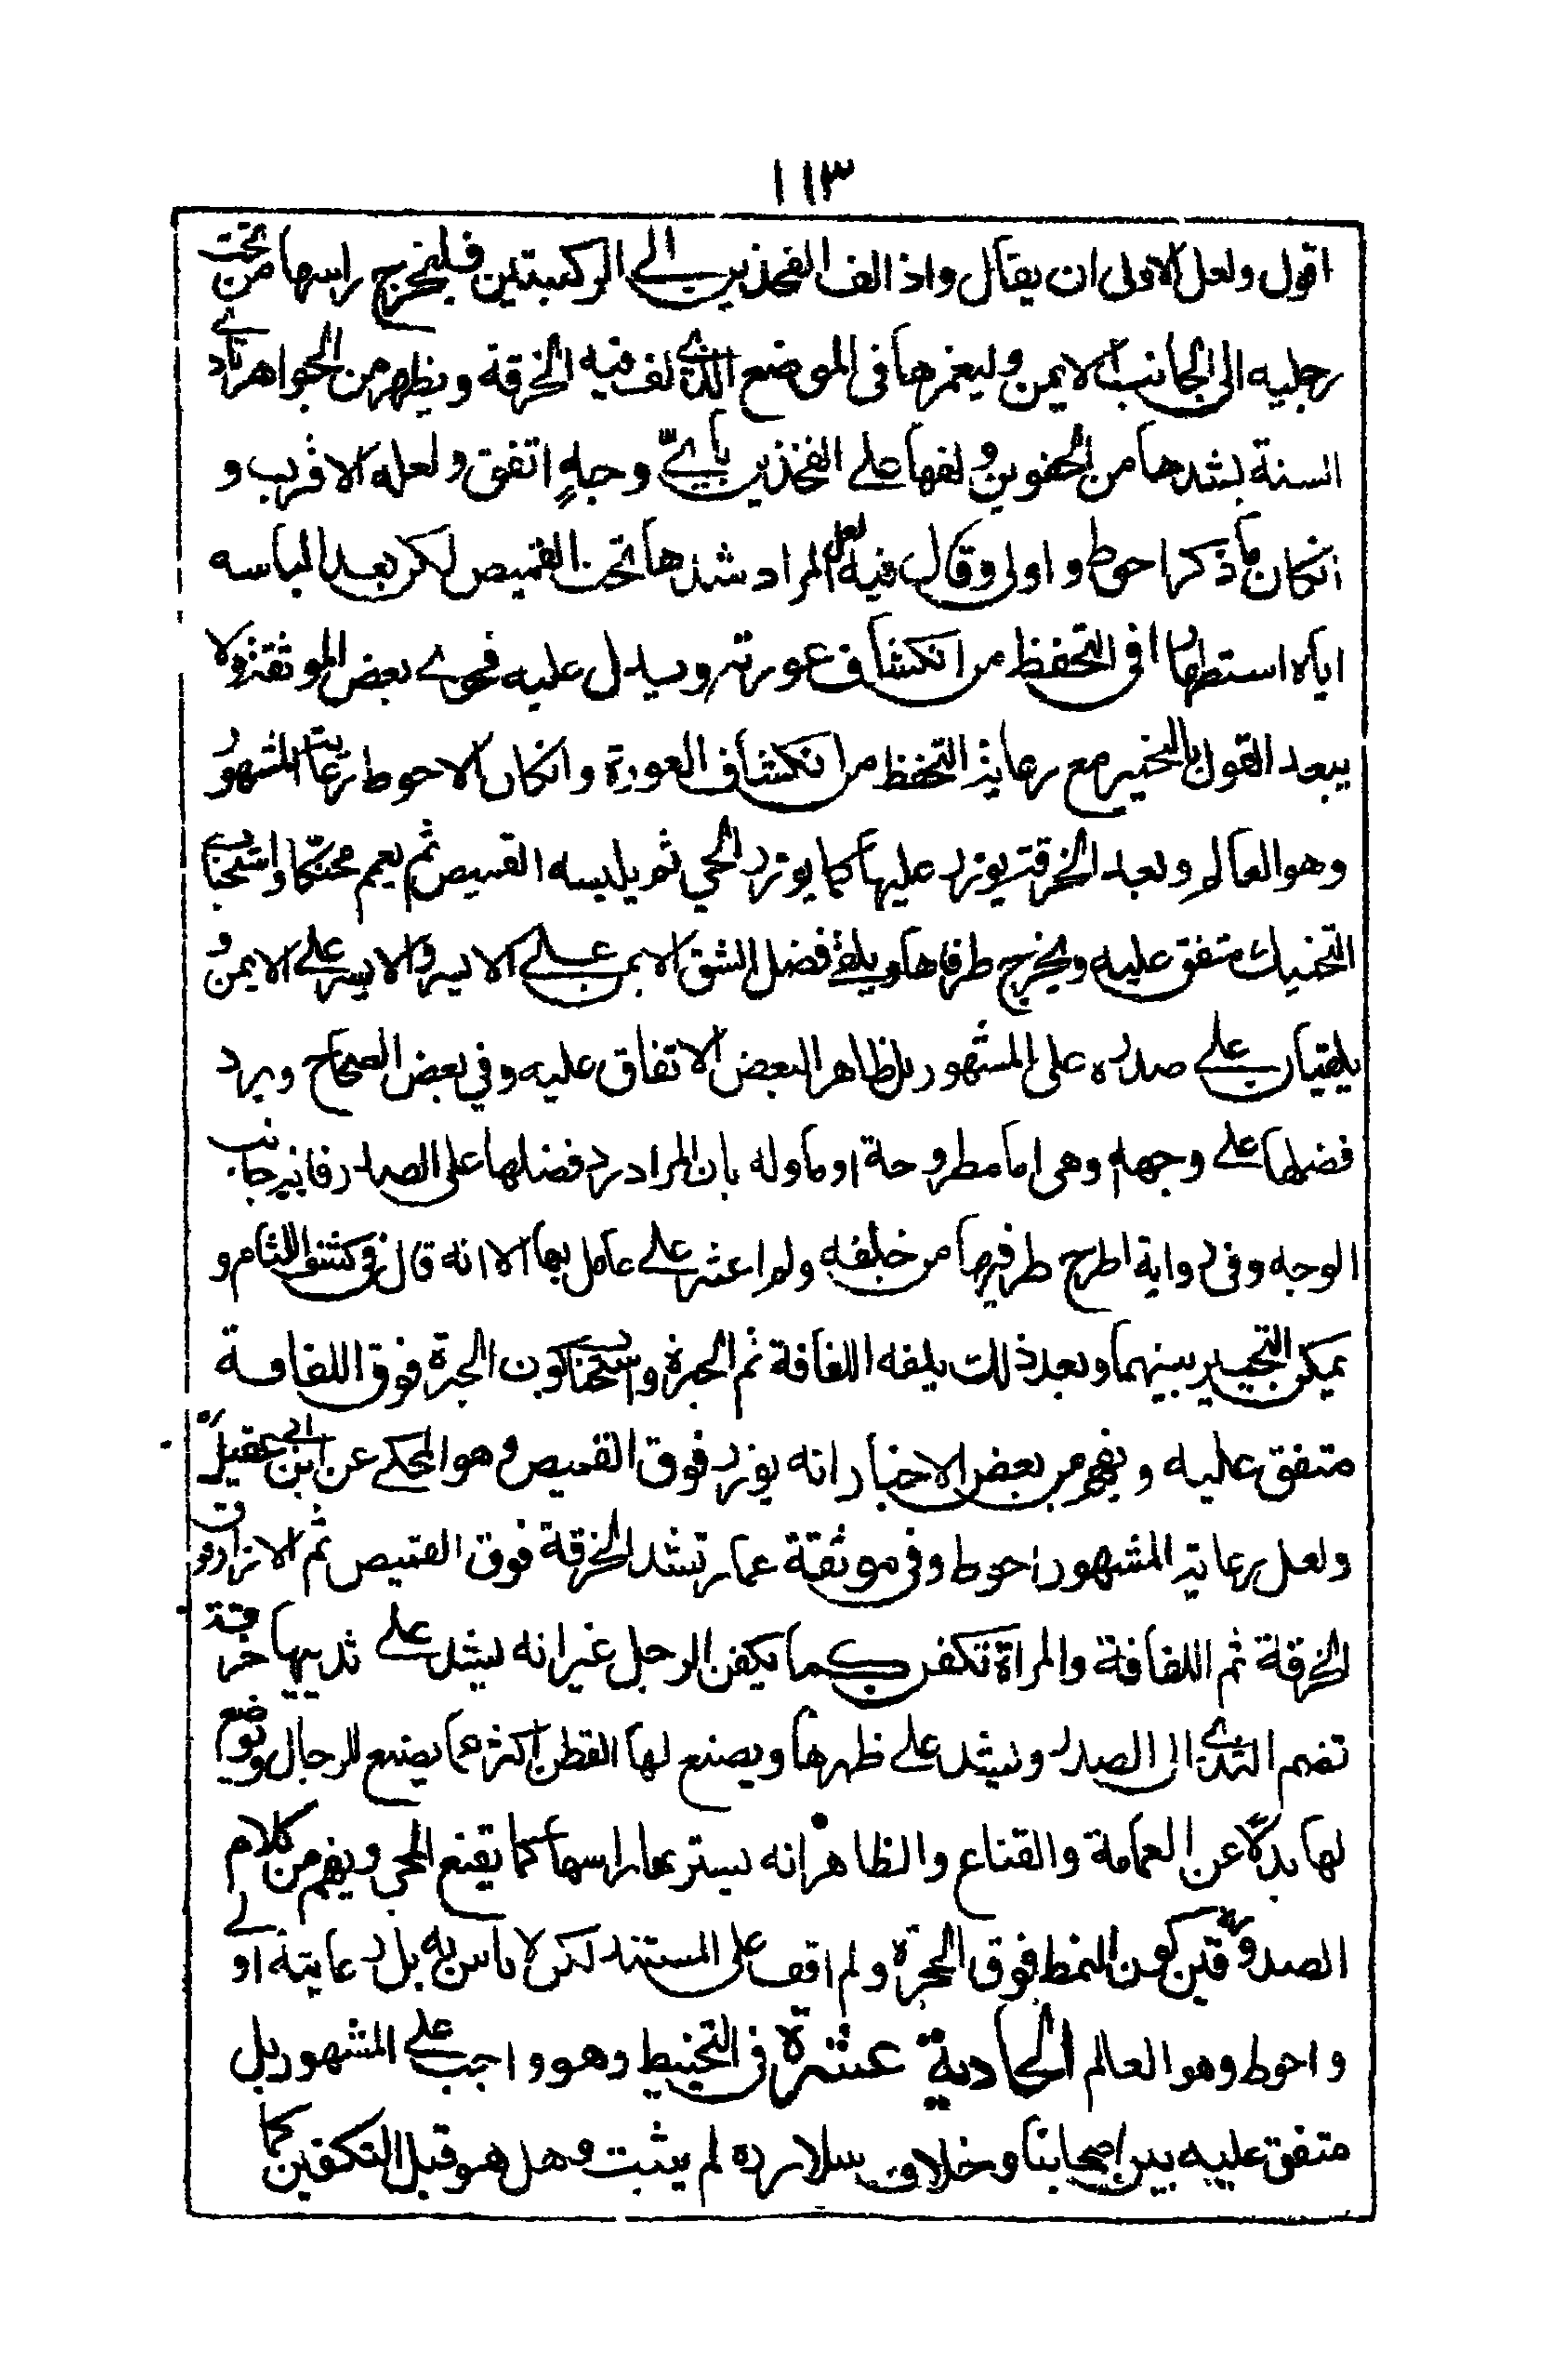 ١١٣
اقول ولعل الاولى ان يقال واذا لف الفخذين الى الركبتين فليخرج راسها من تحت
رجليه الى الجانب الايمن وليغمزها فى الموضع الذى لف فيه الخرقة ويظهر من الجواهر تادى
السنة بشدها من الحقوين ولفها على الفخذين باىّ وجهٍ اتفق ولعله الاقرب و
انكان ما ذكر احوط و اولى وقال فيه لعل المراد شدها تحت القميص لكن بعد الباسه
اياه استظهارا فى التحفظ من انكشاف عورته ويدل عليه فحوى بعض الموثقة ولا
يبعد القول بالتخيير مع رعاية التحفظ من انكشاف العورة وانكان الاحوط رعاية المشهور
وهو العالم وبعد الخرقة يوزر عليها كما يوزر الحي ثم يلبسه القميص ثم يعمم محنّكا واستحباب
التحنيك متفق عليه ويخرج طرفاها ويلقى فضل الشق الايمن على الايسر والايسر على الايمن و
يلقيان على صدره على المشهور بل ظاهر البعض الاتفاق عليه وفي بعض الصحاح ويرد
فضلها على وجهه وهى اما مطروحة او ماوله بان المراد رد فضلها على الصدر فانه جانب
الوجه وفى رواية اطرح طرفيها من خلفه ولم اعثر على عامل بها الا انه قال فى كشف اللثام و
يمكن التخيير بينهما وبعد ذلك يلفه اللفافة ثم الحبرة واستحباب كون الحبرة فوق اللفافة
متفق عليه ويفهم من بعض الاخبار انه يوزر فوق القميص وهو المحكى عن ابن ابى عقيل ره
ولعل رعاية المشهور احوط وفى موثقة عمار تشد الخرقة فوق القميص ثم الازار فوق
الخرقة ثم اللفافة والمراة تكفن كما يكفن الرجل غير انه يشد على ثدييها خرقة
تضم الثدى الى الصدر ويشد على ظهرها ويصنع لها القطن اكثر مما يصنع للرجال ويوضع
لها بدلًا عن العمامة والقناع والظاهر انه يستر بها راسها كما يقنع الحي ويفهم من كلام
الصدوقين ره كون النمط فوق الحبرة ولم اقف على المستند لكن لا باس به بل رعايته اولى
و احوط وهو العالم الحادية عشرة فى التحنيط وهو واجب على المشهور بل
متفق عليه بين اصحابنا وخلاف سلار ره لم يثبت وهل هو قبل التكفين كما